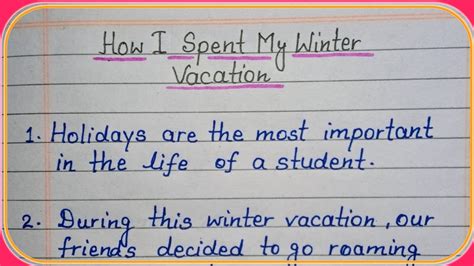 How I Spent My Winter
Vacation
1. Holidays are the most important
in the life of a student.
2. During this winter vacation, our
friends decided to go roaming